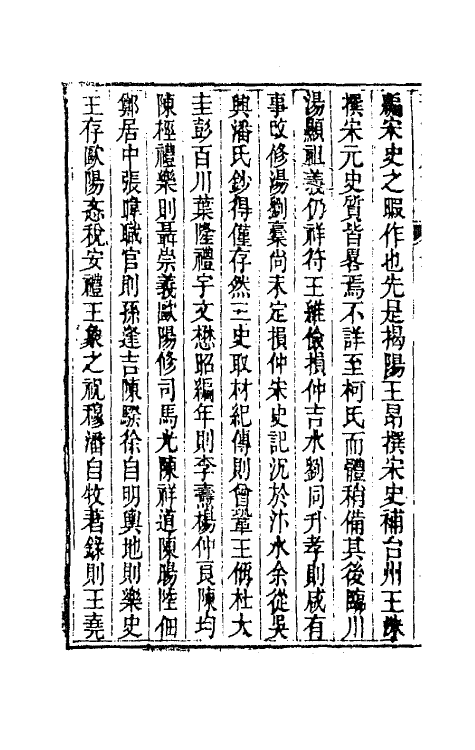 編宋史之暇作也先是揭陽王昂撰宋史補台州王洙
撰宋元史質皆畧焉不詳至柯氏而體稍備其後臨川
湯顯祖義仍祥符王維儉損仲吉水劉同升孝則咸有
事改修湯劉稾尚未定損仲宋史記沉於汴水余從吳
興潘氏鈔得僅存然三史取材紀傳則曾鞏王偁杜大
圭彭百川葉隆禮宇文懋昭編年則李燾楊仲良陳均
陳桱禮樂則聶崇義歐陽修司馬光陳祥道陳暘陸佃
鄭居中張暐職官則孫逢吉陳騤徐自明輿地則樂史
王存歐陽忞稅安禮王象之祝穆潘自牧著錄則王堯